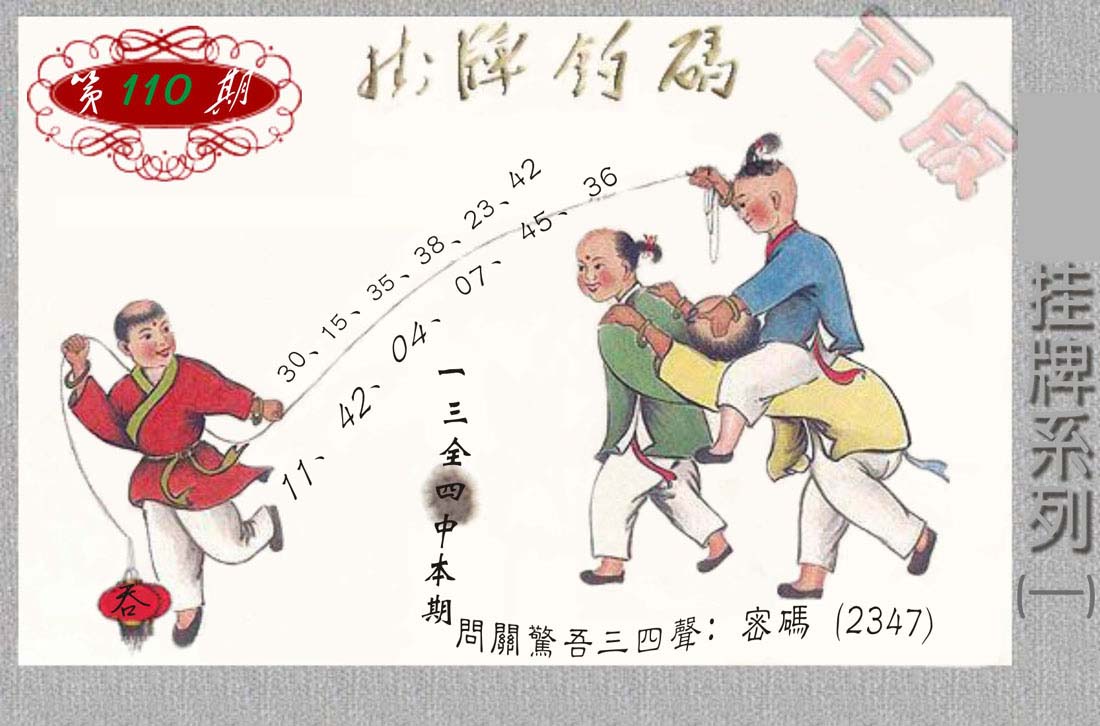 第 110 期
掛牌釣碼
正版
30、15、35、38、23、42
11、42、04、07、45、36
一三全四中本期
吞
問關驚吾三四聲：密碼（2347）
挂牌系列(一)